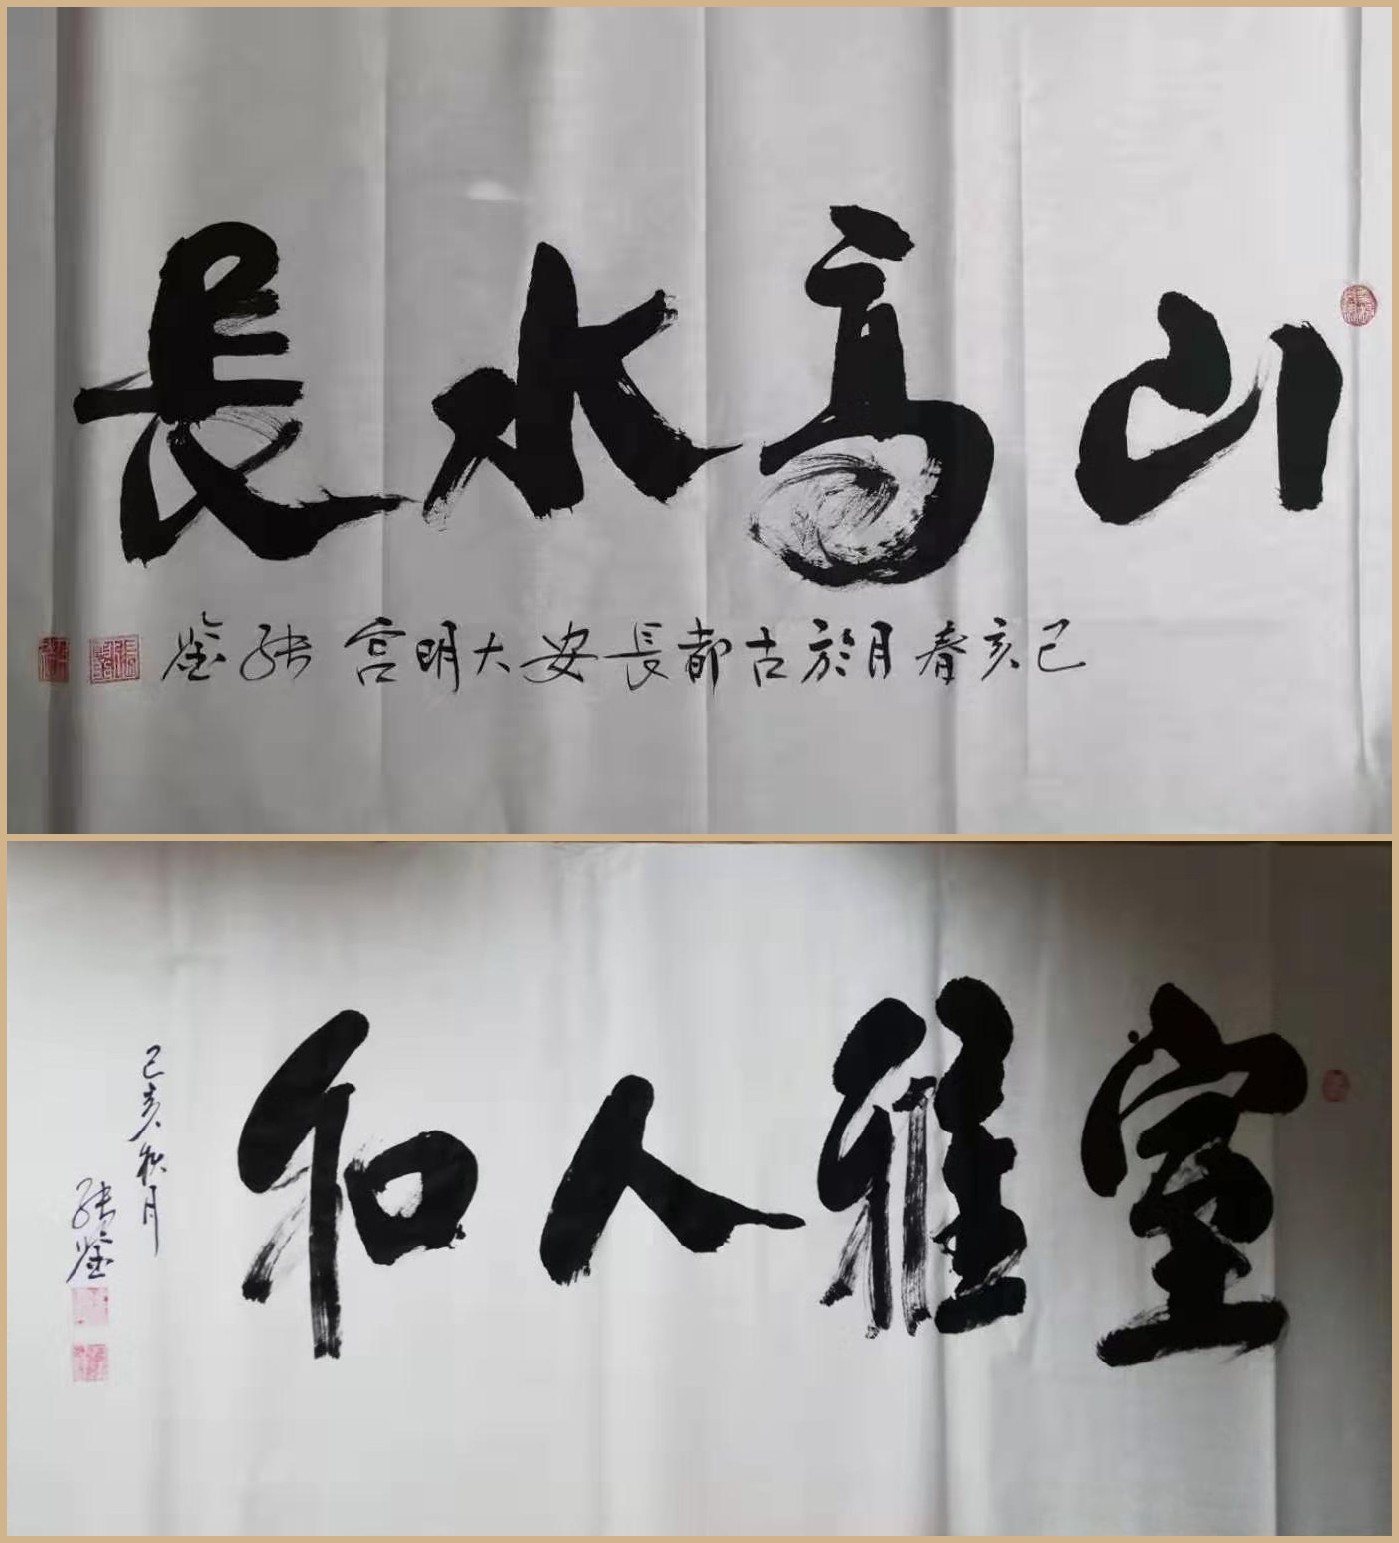 山高水長
己亥春月於古都長安大明宫 张鉴
室雅人和
己亥秋月
张鉴